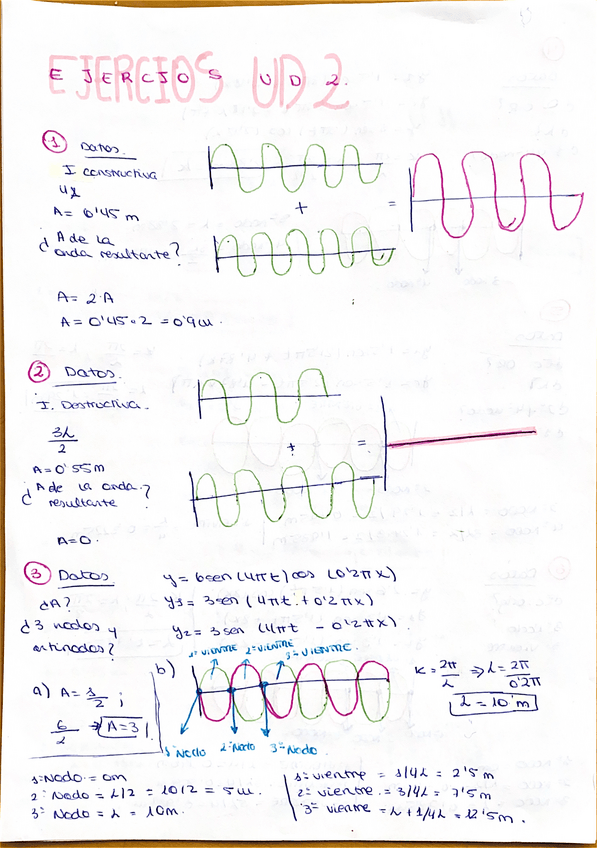 EJERCIOS UD 2.
1 Datos.
I constructiva
4λ
A = 0'45 m
¿ A de la
onda resultante?
+
=
A = 2·A
A = 0'45·2 = 0'9m.
2 Datos.
I. Destructiva.
3λ/2
A = 0'55m
¿ A de la onda
resultante ?
+
=
A=0.
3 Datos
¿A?
¿3 nodos y
antinodos?
y = 6sen (4πt) cos (0'2πx)
y1 = 3sen (4πt + 0'2πx)
y2 = 3sen (4πt - 0'2πx).
a)
6/2 → A=3
b)
1º VIENTRE 2º VIENTRE 3º VIENTRE
1º Nodo 2º Nodo 3º Nodo
K = 2π/λ ⇒ λ = 2π/0'2π
λ = 10 m
1º Nodo = 0m
2º Nodo = λ/2 = 10/2 = 5m.
3º Nodo = λ = 10m.
1º vientre = 1/4λ = 2'5 m
2º vientre = 3/4λ = 7'5m
3º vientre = λ + 1/4λ = 12'5m.